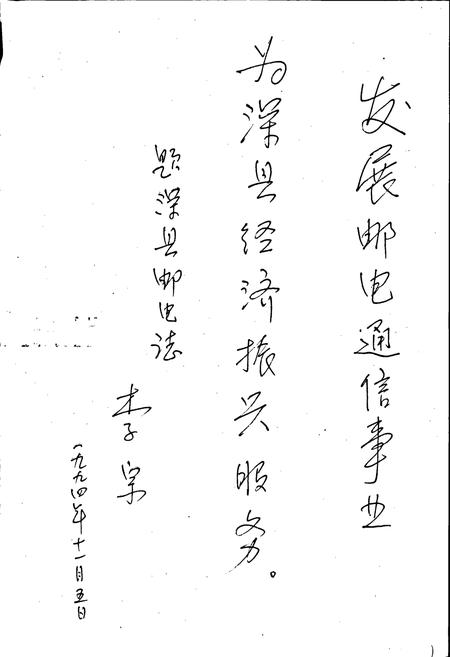 发展邮电通信事业
为深县经济振兴服务。
题深县邮电志
李宗
一九九四年十一月五日